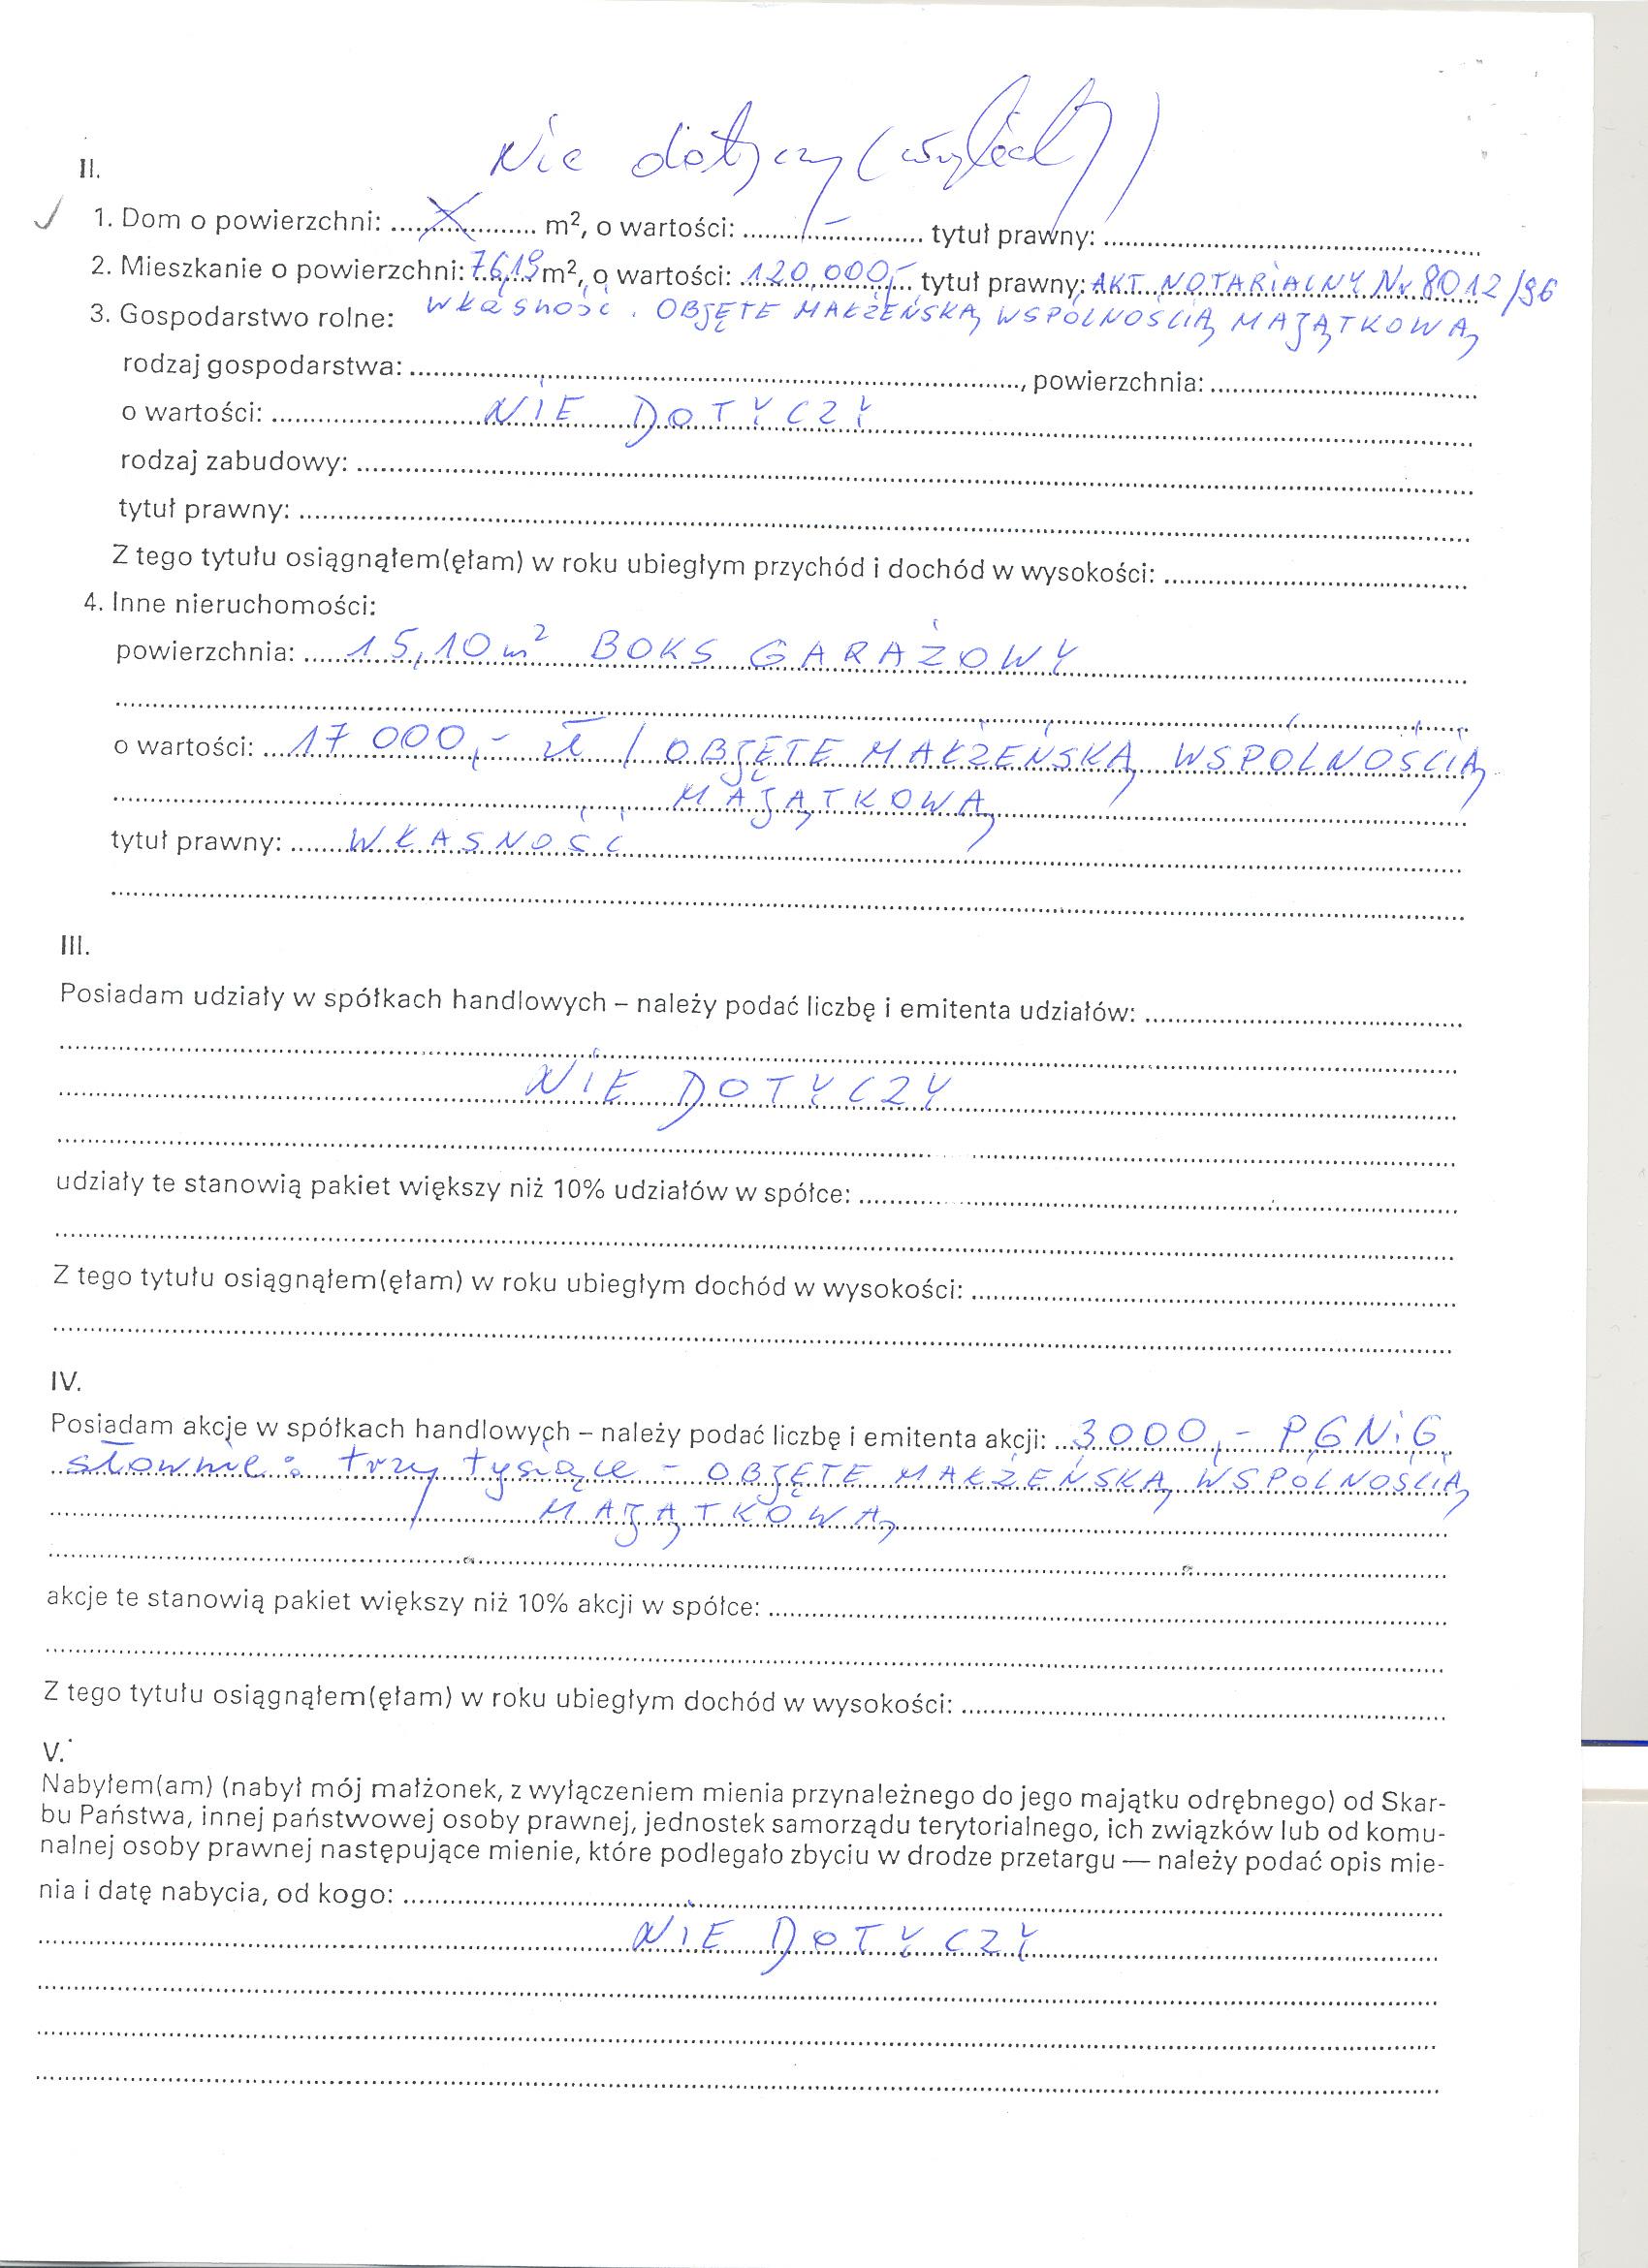 Nie dotyczy
II.
1. Dom o powierzchni: ....X.... m², o wartości: ....../–...... tytuł prawny: ......
2. Mieszkanie o powierzchni: 76,19 m², o wartości: 120.000,- tytuł prawny: AKT NOTARIALNY Nr 8012/96
własność . OBJĘTE MAŁŻEŃSKĄ WSPÓLNOŚCIĄ MAJĄTKOWĄ
3. Gospodarstwo rolne:
rodzaj gospodarstwa: ......, powierzchnia: ......
o wartości: ...... NIE DOTYCZY ......
rodzaj zabudowy: ......
tytuł prawny: ......
Z tego tytułu osiągnąłem(ęłam) w roku ubiegłym przychód i dochód w wysokości: ......
4. Inne nieruchomości:
powierzchnia: ...... 15,10 m² BOKS GARAŻOWY ......
o wartości: ... 17 000,- zł / OBJĘTE MAŁŻEŃSKĄ WSPÓLNOŚCIĄ
MAJĄTKOWĄ
tytuł prawny: ...... WŁASNOŚĆ ......
III.
Posiadam udziały w spółkach handlowych – należy podać liczbę i emitenta udziałów: ......
NIE DOTYCZY
udziały te stanowią pakiet większy niż 10% udziałów w spółce: ......
Z tego tytułu osiągnąłem(ęłam) w roku ubiegłym dochód w wysokości: ......
IV.
Posiadam akcje w spółkach handlowych – należy podać liczbę i emitenta akcji: ... 3000,- PGNiG
słownie: trzy tysiące - OBJĘTE MAŁŻEŃSKĄ WSPÓLNOŚCIĄ
MAJĄTKOWĄ
akcje te stanowią pakiet większy niż 10% akcji w spółce: ......
Z tego tytułu osiągnąłem(ęłam) w roku ubiegłym dochód w wysokości: ......
V.
Nabyłem(am) (nabył mój małżonek, z wyłączeniem mienia przynależnego do jego majątku odrębnego) od Skar-
bu Państwa, innej państwowej osoby prawnej, jednostek samorządu terytorialnego, ich związków lub od komu-
nalnej osoby prawnej następujące mienie, które podlegało zbyciu w drodze przetargu — należy podać opis mie-
nia i datę nabycia, od kogo: ......
NIE DOTYCZY